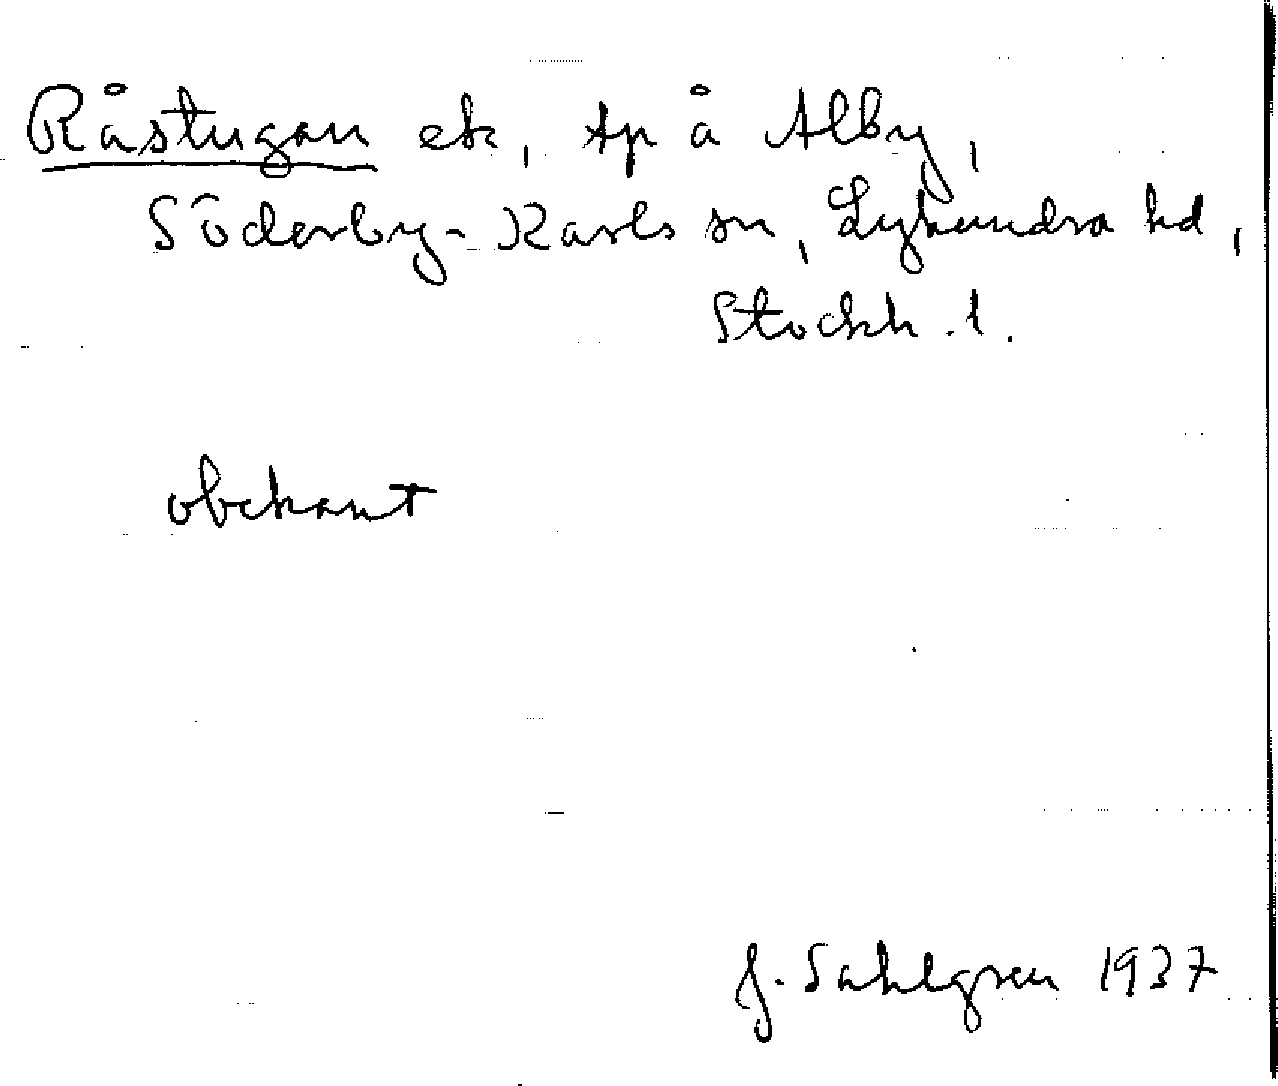 Råstugan ek, tp å Alby,
Söderby-Karls sn, Lyhundra hd,
Stockh. l.
obekant
J. Sahlgren 1937